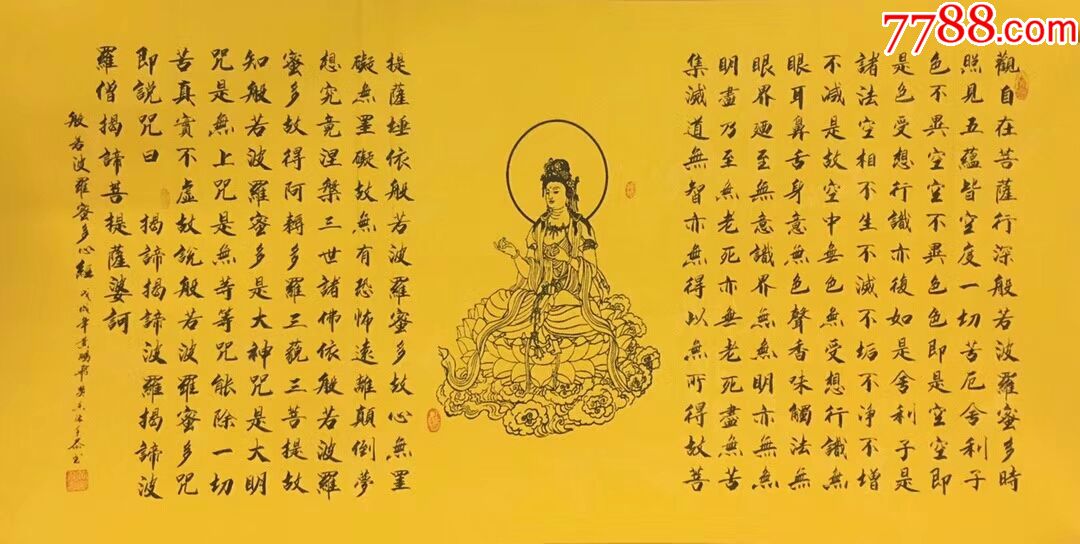 7788.com
觀自在菩薩行深般若波羅蜜多時
照見五蘊皆空度一切苦厄舍利子
色不異空空不異色色即是空空即
是色受想行識亦復如是舍利子是
諸法空相不生不滅不垢不净不增
不減是故空中無色無受想行識無
眼耳鼻舌身意無色聲香味觸法無
眼界廼至無意識界無無明亦無無
明盡乃至無老死亦無老死盡無苦
集滅道無智亦無得以無所得故菩
提薩埵依般若波羅蜜多故心無罣
礙無罣礙故無有恐怖遠離顛倒夢
想究竟涅槃三世諸佛依般若波羅
蜜多故得阿耨多羅三藐三菩提故
知般若波羅蜜多是大神咒是大明
咒是無上咒是無等等咒能除一切
苦真實不虛故說般若波羅蜜多咒
即說咒曰 揭諦揭諦波羅揭諦波
羅僧揭諦菩提薩婆訶
般若波羅蜜多心經 戊戌年